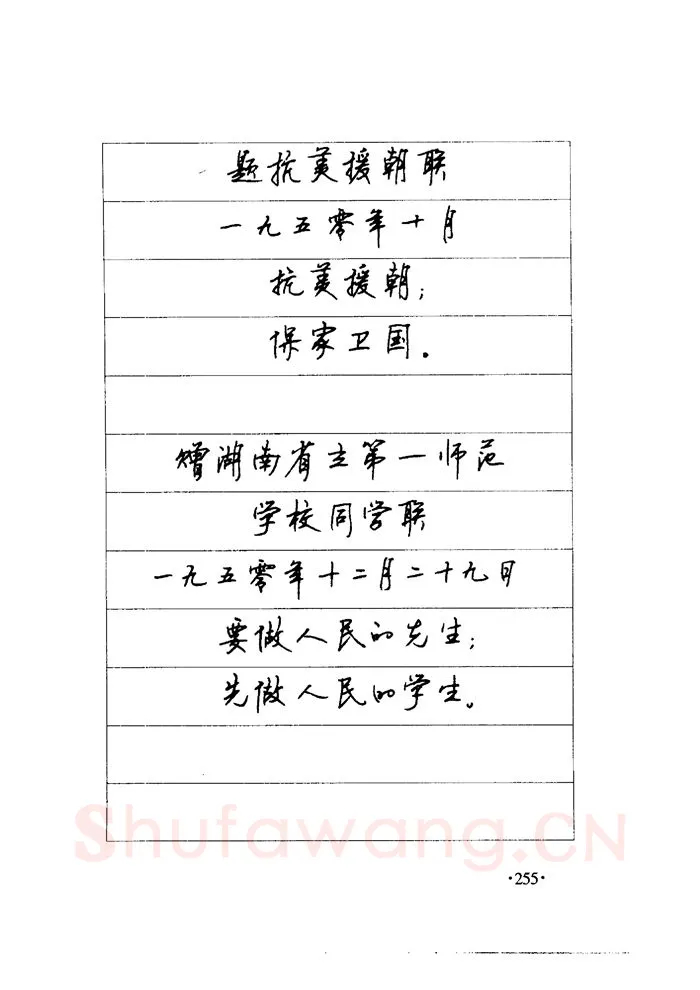 题抗美援朝联
一九五零年十月
抗美援朝；
保家卫国。
赠湖南省立第一师范
学校同学联
一九五零年十二月二十九日
要做人民的先生；
先做人民的学生。
Shufawang.CN
·255·